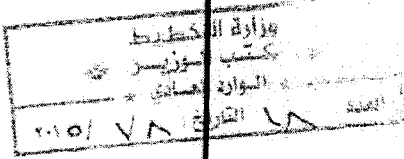 وزارة التخطيط
مكتب الوزير
الوارد العادي
العدد ١٨ التاريخ ٧٨ /٢٠١٥